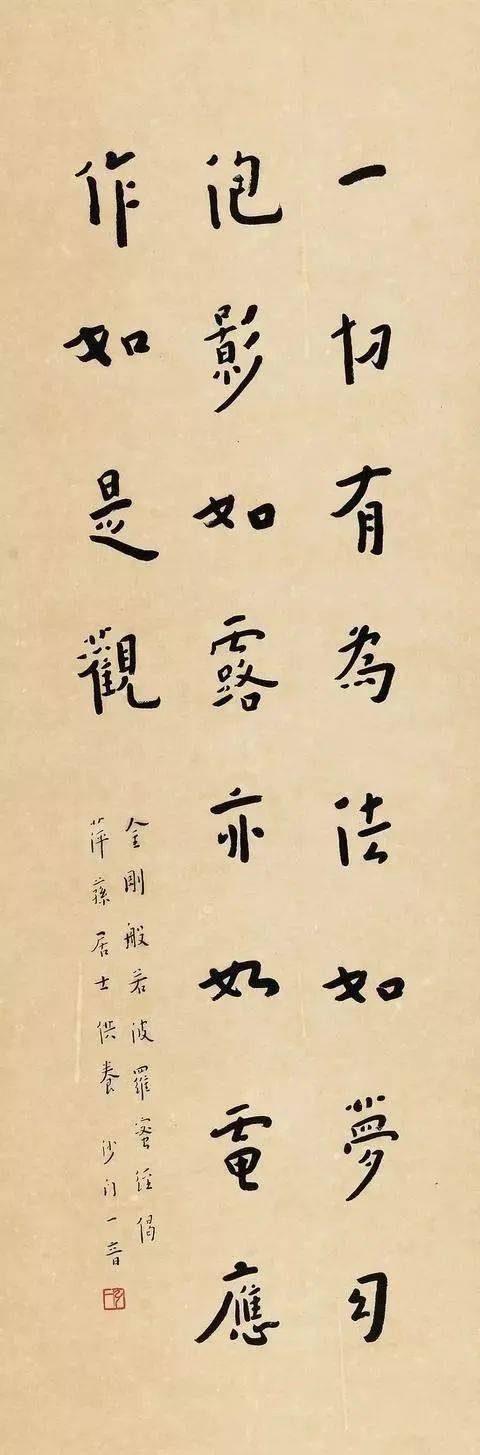 一切有為法如夢幻
泡影如露亦如電應
作如是觀
金剛般若波羅蜜經偈
萍蓀居士供養 沙門一音